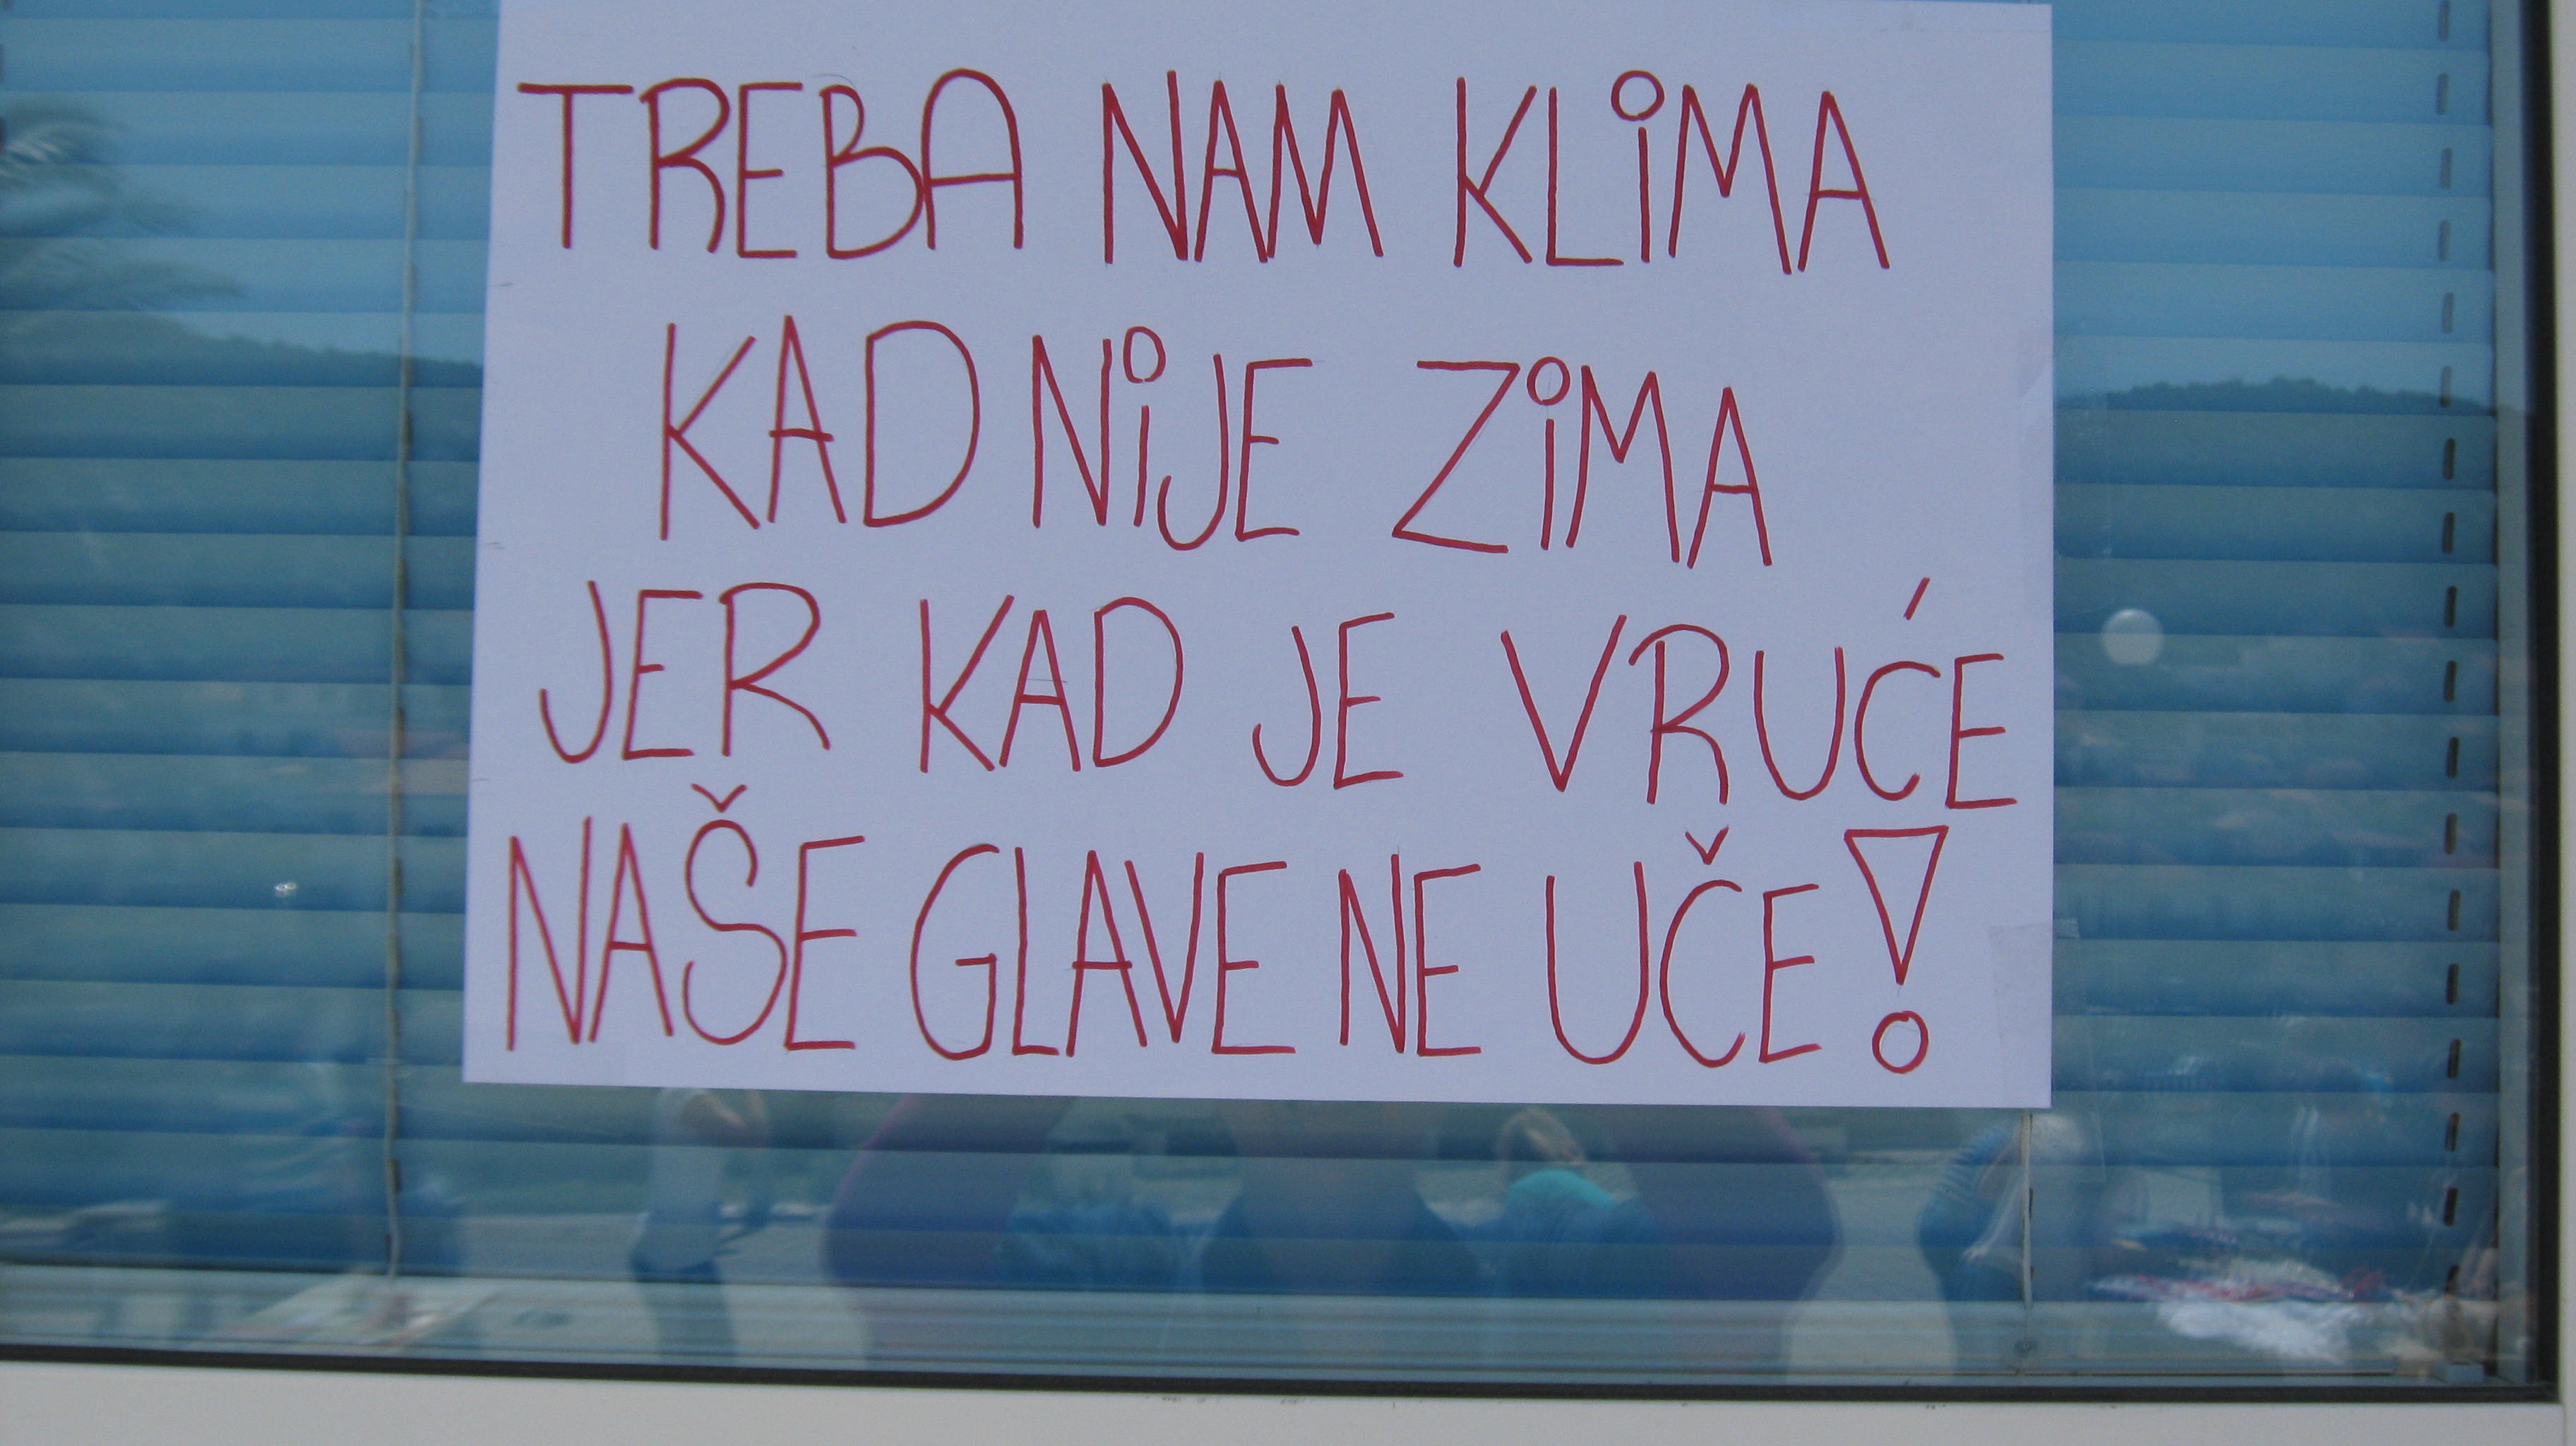 TREBA NAM KLiMA
KAD NiJE ZiMA
JER KAD JE VRUĆE
NAŠE GLAVE NE UČE!